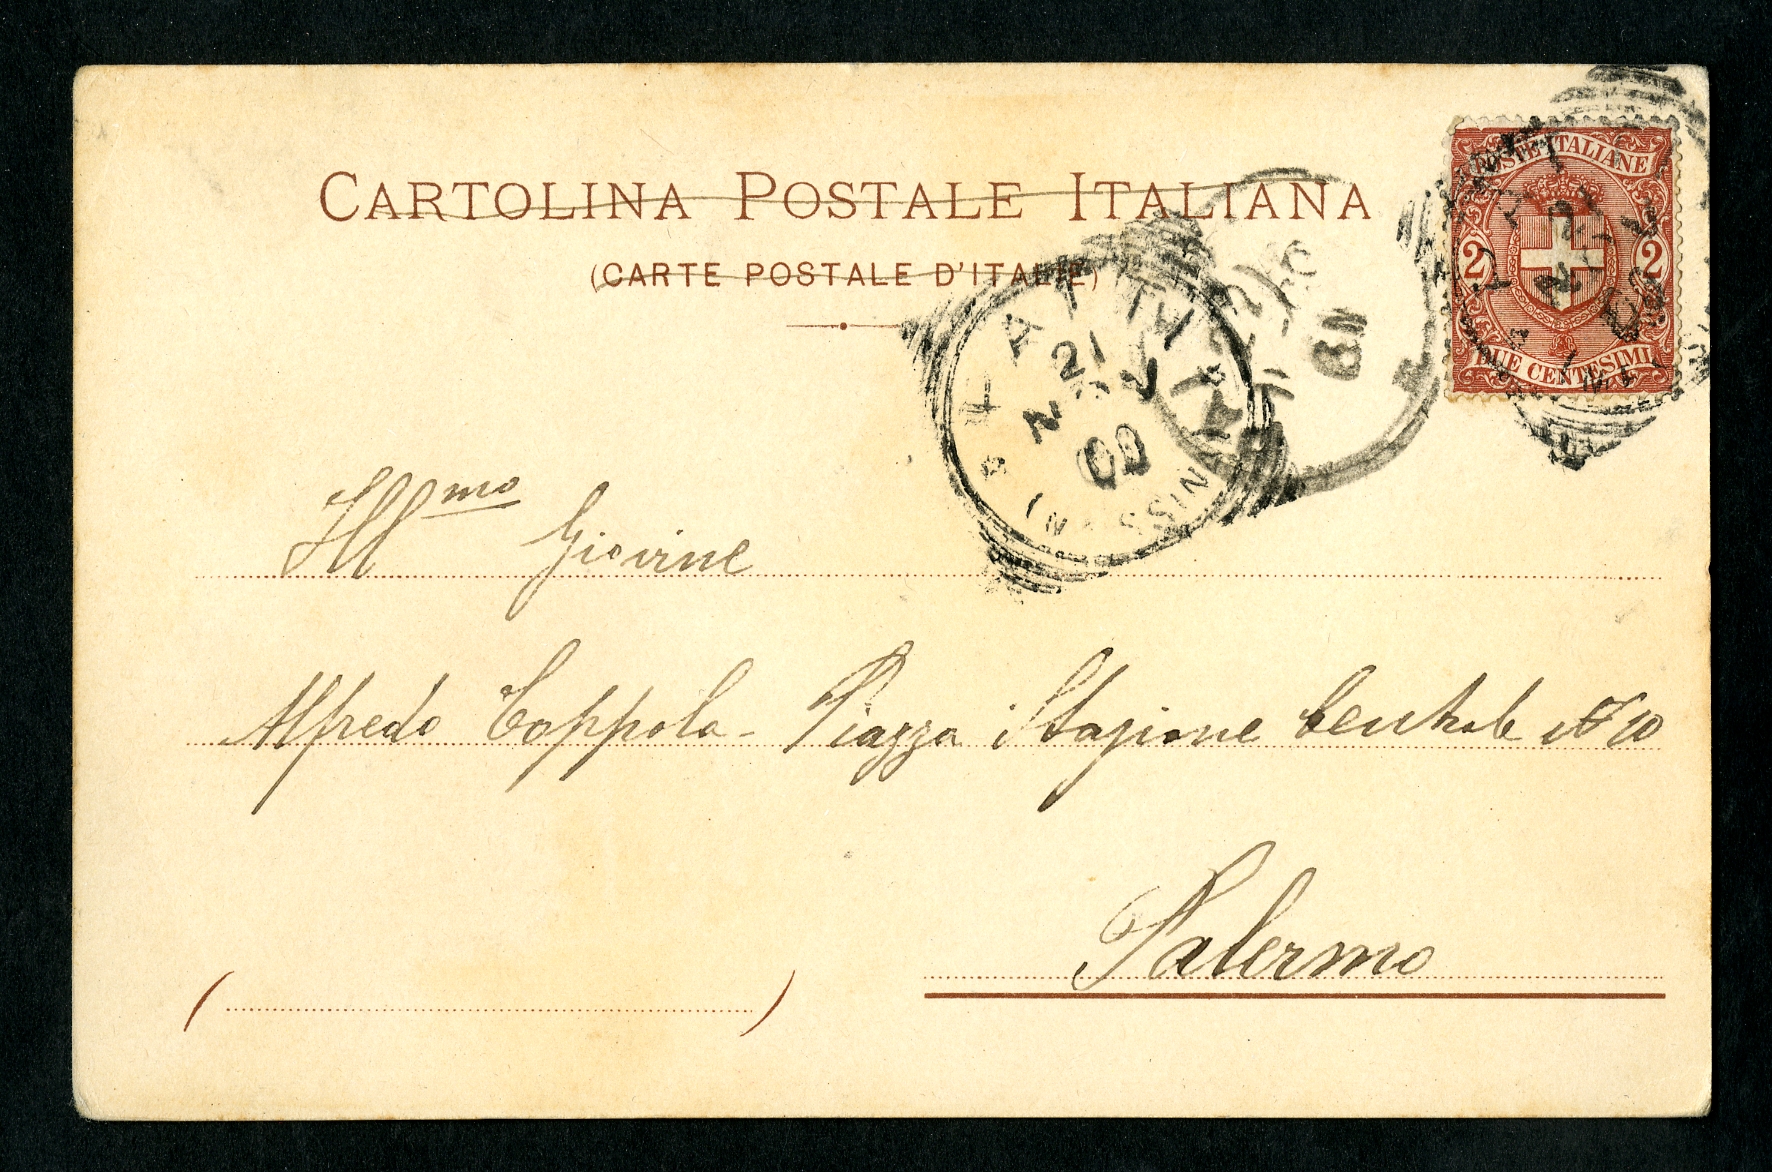 CARTOLINA POSTALE ITALIANA
(CARTE POSTALE D'ITALIE)
POSTE ITALIANE
2 2
DUE CENTESIMI
21
NOV
00
Illmo Giovine
Alfredo Coppola - Piazza Stazione Centrale N 10
Palermo
( )